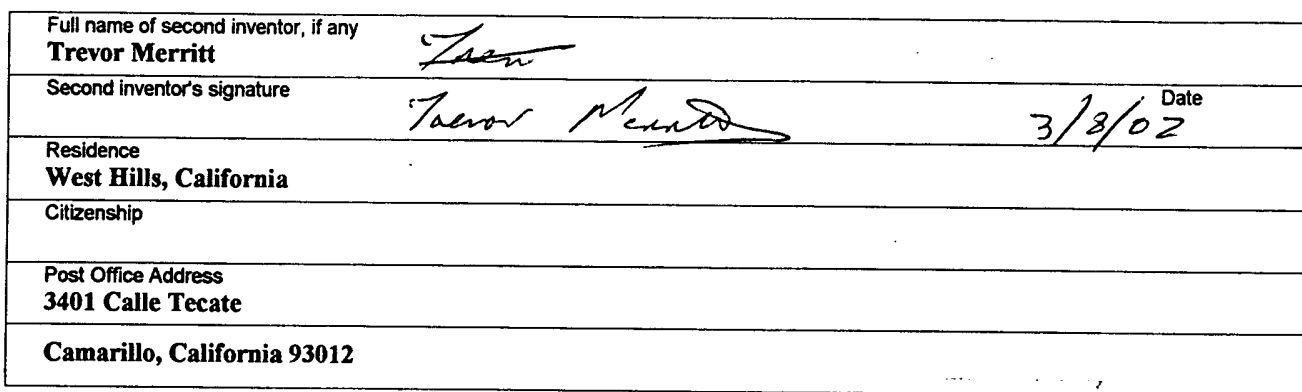 Full name of second inventor, if any
Trevor Merritt
Second inventor's signature
Trevor Merritt
Date
3/8/02
Residence
West Hills, California
Citizenship
Post Office Address
3401 Calle Tecate
Camarillo, California 93012